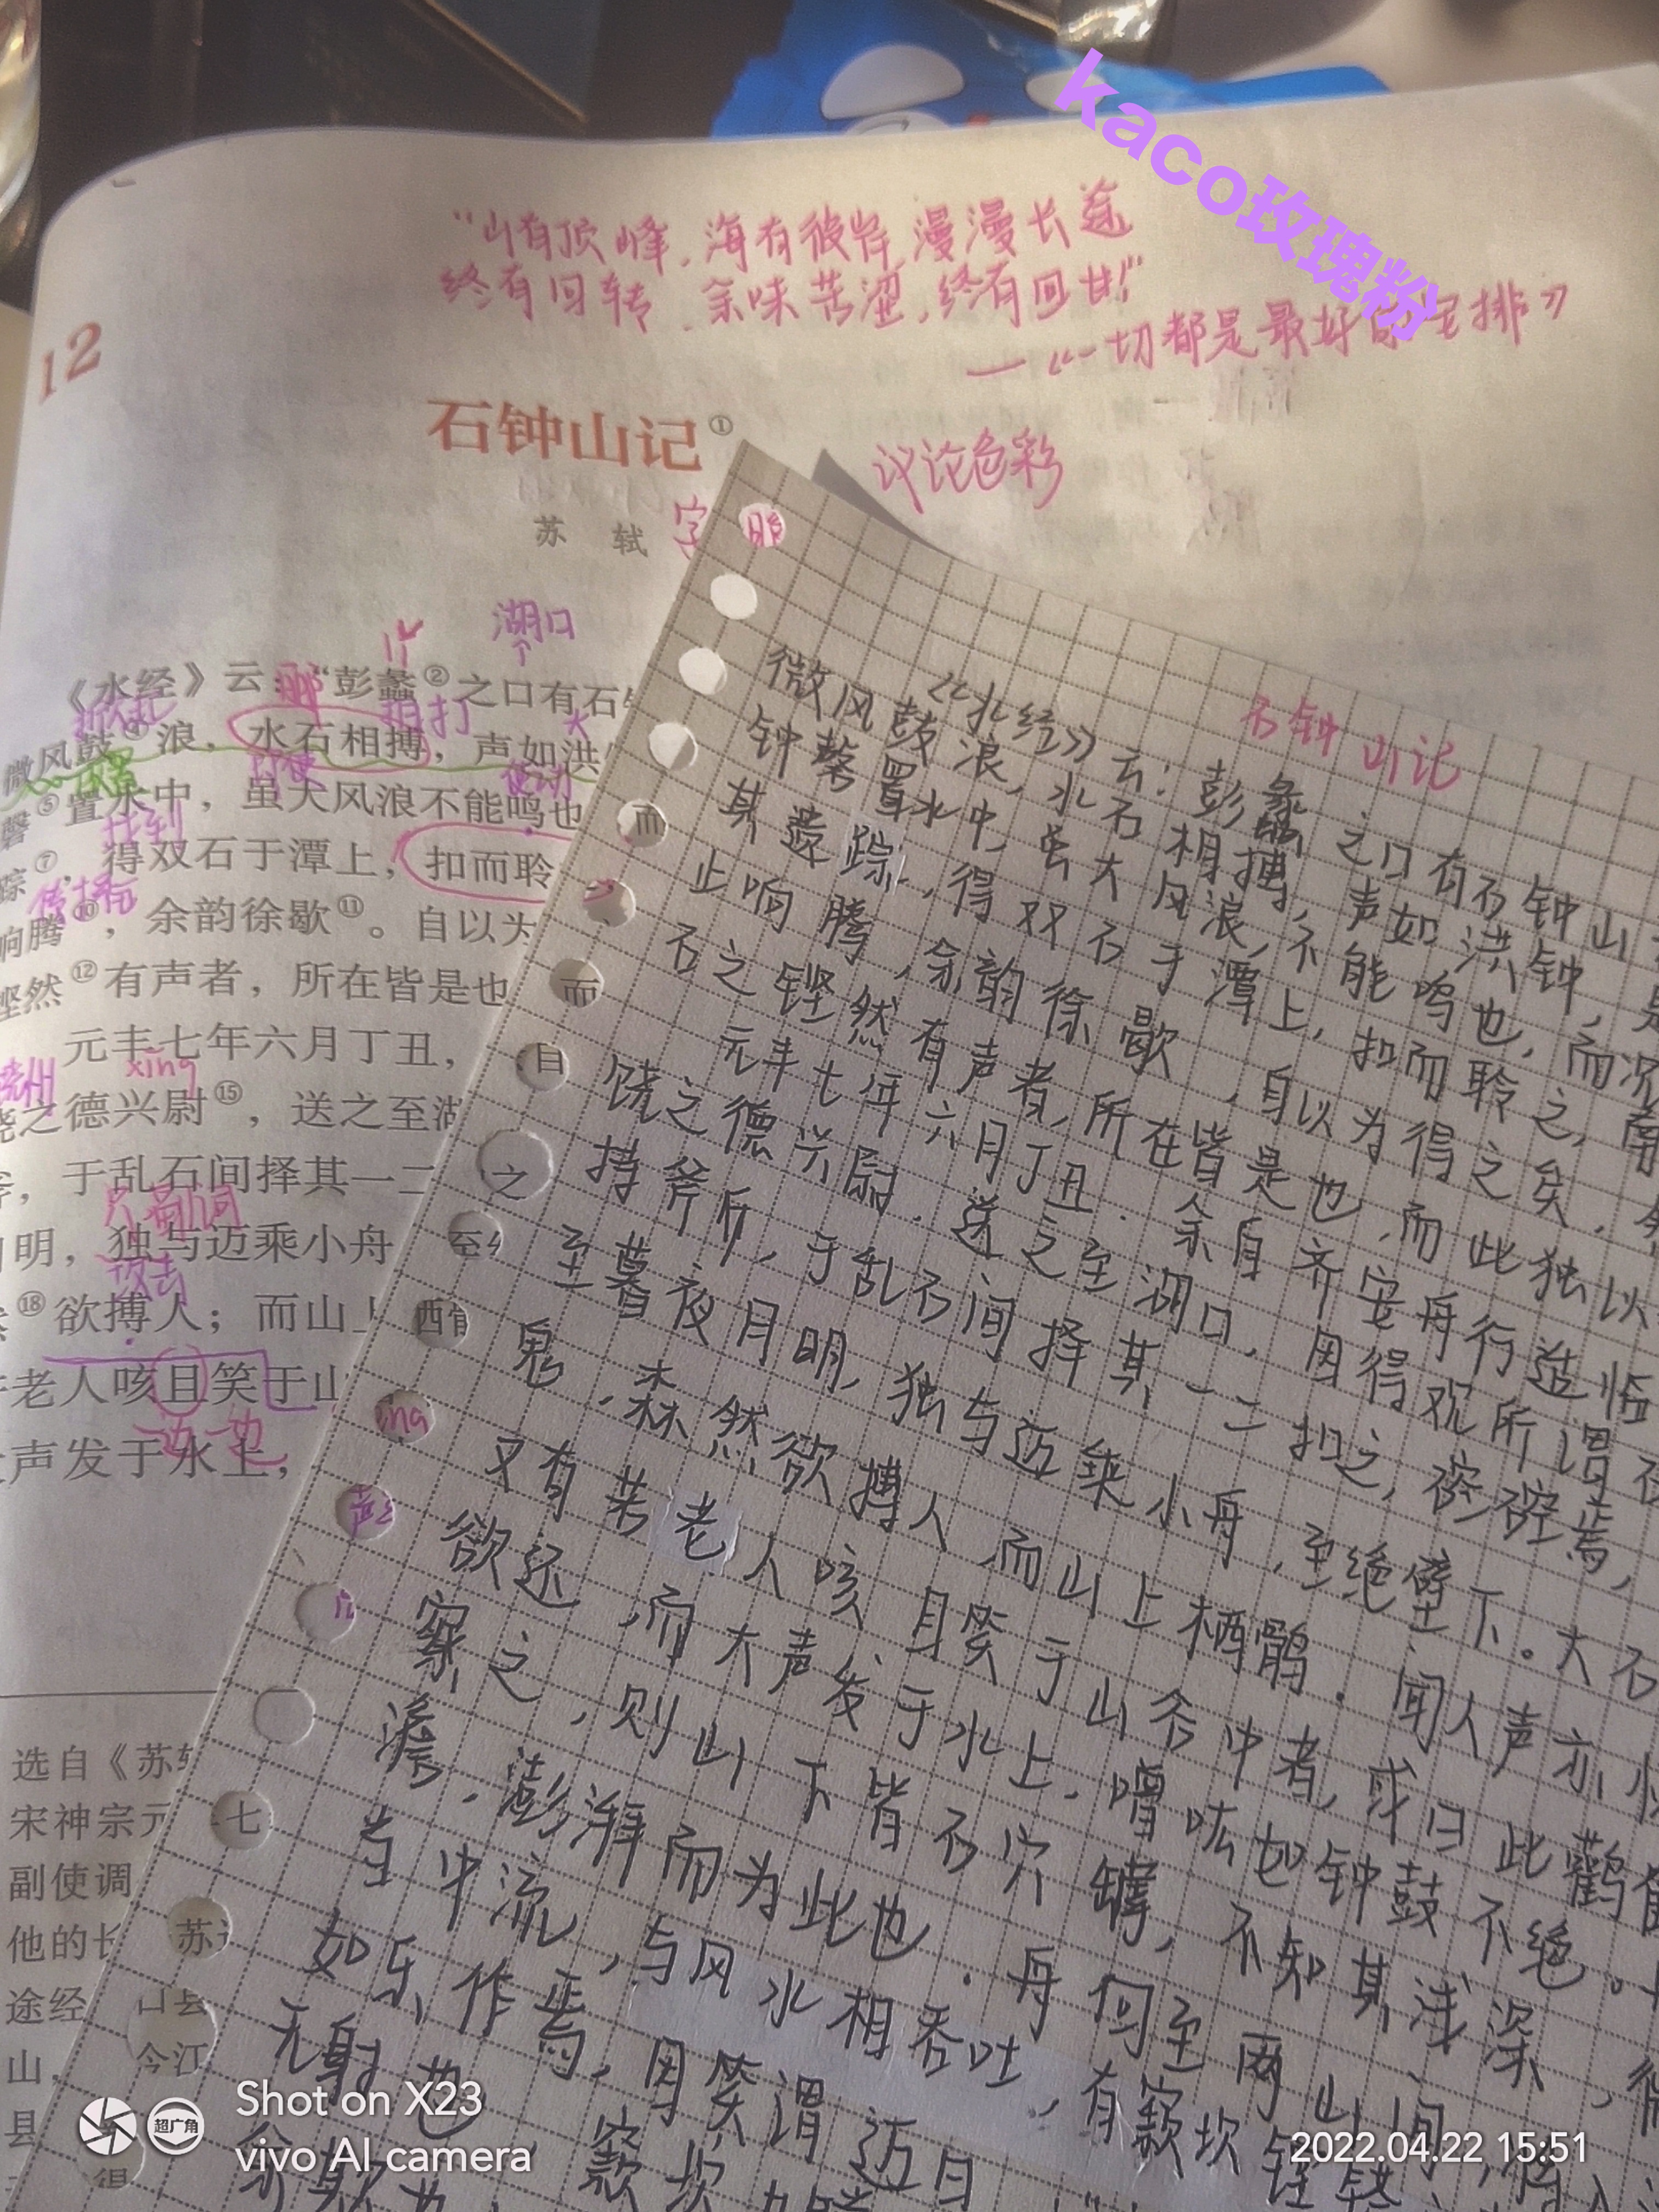 kaco玫瑰粉
“山有顶峰,海有彼岸,漫漫长途
终有回转,余味苦涩,终有回甘!”
—《一切都是最好的安排》
12
石钟山记①
议论色彩
苏 轼
湖口
《水经》云:“彭蠡②之口有石
拍打
微风鼓④浪,水石相搏,声如洪
磬⑤置水中,虽大风浪不能鸣也
找到
踪⑦,得双石于潭上,扣而聆
响腾⑩,余韵徐歇⑪。自以为
铿然⑫有声者,所在皆是也
元丰七年六月丁丑,
xing
饶之德兴尉⑮,送之至湖
斧,于乱石间择其一二
明,独与迈乘小舟
⑱欲搏人;而山上
老人咳且笑于山
声发于水上,
选自《苏轼
宋神宗元
副使调
他的长
途经
山,
县
而
而
自
之
至
七
苏
口县
今江
得
石钟山记
《水经》云:彭蠡之口有石钟山
微风鼓浪,水石相搏,声如洪钟,是
钟磬置水中,虽大风浪,不能鸣也,而况
其遗踪,得双石于潭上,扣而聆之,南
止响腾,余韵徐歇,自以为得之矣,余
石之铿然有声者,所在皆是也,而此独以
元丰七年六月丁丑.余自齐安舟行适临
饶之德兴尉.送之至湖口,因得观所谓石
持斧斤,于乱石间择其一二扣之,硿硿焉,
至暮夜月明,独与迈乘小舟,至绝壁下。大石
鬼,森然欲搏人而山上栖鹘.闻人声亦
又有若老人咳且笑于山谷中者,或曰此鹳鹤
欲还,而大声发于水上,噌吰如钟鼓不绝。
察之,则山下皆石穴罅,不知其浅深,微
澹,澎湃而为此也.舟回至两山间,
当中流,与风水相吞吐,有窾坎
如乐作焉,因笑谓迈曰
无射也,窾坎
Shot on X23
vivo AI camera
超广角
2022.04.22 15:51